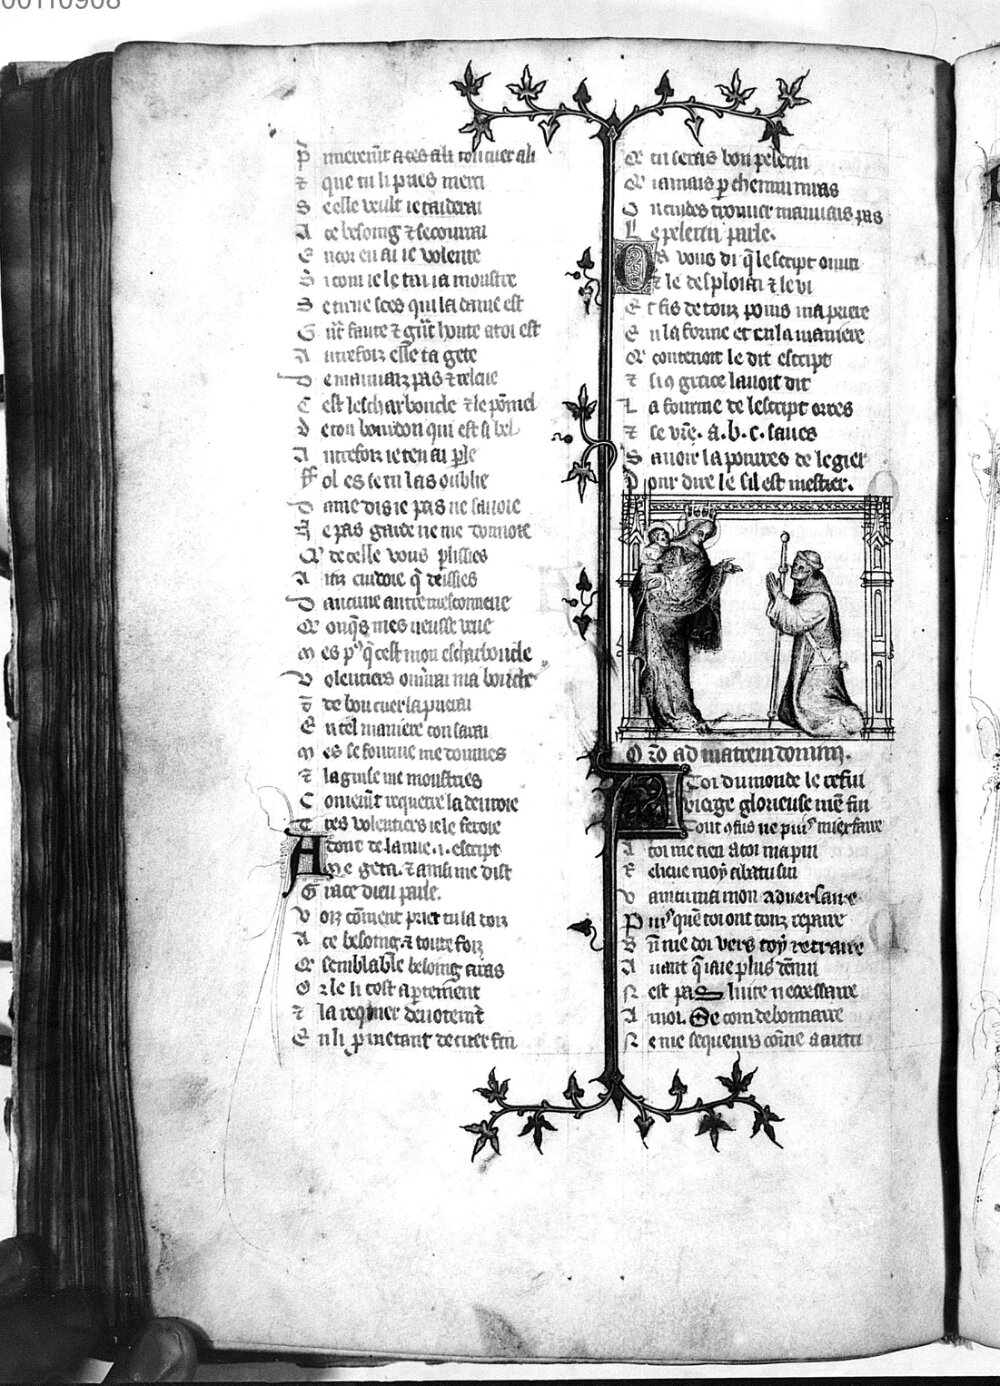 00110908
que tu li pries merci
S elle veult ie taiderai
A ce besoing ⁊ secourrai
E ncor en ai ie volente
S i com ie le tai ia moustre
S e tu ne sces qui la dame est
A utrefoiz
D e mauuaiz pas ⁊ relieue
C est lescharboucle ⁊ le pomel
D e ton bourdon qui est si bel
A utrefoiz ie ten ai ple
F ol es se tu las oublie
D ame dis ie pas ne sauoie
N e pas garde ne me donnoie
Q̄ de celle vous plissies
A inz cuidoie q̄ deissies
D aucune autre mesconneue
Q̄ onq̄s mes neusse veue
M es p q̄ cest mon escharboucle
V olentiers ouurrai ma bouche
⁊ de bon cuer la prierai
E n tel maniere con sarai
M es se fourme me donnes
⁊ la guise me moustres
C oment requerre la deuroie
T res volentiers ie le feroie
A dont de la nue .i. escript
Me geta. ⁊ ainsi me dist
G race dieu parle.
V oiz coment prier tu la doiz
A ce besoing. ⁊ toutefoiz
Q̄ semblable besoing aras
O r le li tost apertement
⁊ la requier deuotement
E n li prometant de cuer fin
Q̄ tu seras bon pelerin
Q̄ iamais p chemin niras
O u cuides trouuer mauuais pas
L e pelerin parle.
O r vous di q̄ lescript ouuri
⁊ le desploiai ⁊ le vi
E t fis de touz poins ma priere
E n la forme et en la maniere
Q̄ contenoit le dit escript
⁊ si 9 grace lauoit dit
L a fourme de lescript orres
⁊ se vre. a. b. c. saues
S auoir la pourres de legier
P our dire le sil est mestier.
Oro ad matrem domini.
A Toi du monde le refui
vierge glorieuse men fui
Tout 9fus ne puis miex faire
A toi me tien a toi mapui
R elieue moy abatu sui
V aincu ma mon aduersaire
P uis quen toi ont touz repaire
B n me doi vers toy retraire
A uant q̄ iaie plus denui
N est pas luite necessaire
A moi. Se com debonnaire
N e me sequeurs come a autrui